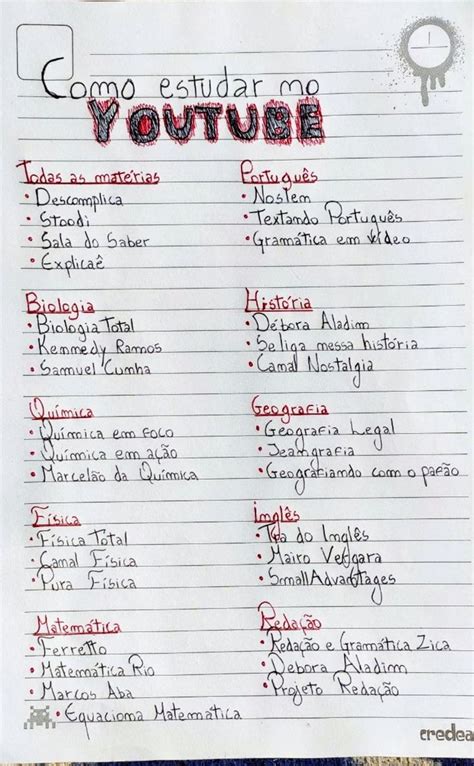 Como estudar no
YOUTUBE
Todas as matérias
• Descomplica
• Stoodi
• Sala do Saber
• Explicaê
Português
• Noslen
• Textando Português
• Gramática em vídeo
Biologia
• Biologia Total
• Kennedy Ramos
• Samuel Cunha
História
• Débora Aladim
• Se liga nessa história
• Canal Nostalgia
Química
• Química em foco
• Química em ação
• Marcelão da Química
Geografia
• Geografia Legal
• Jeangrafia
• Geografiando com o pafão
Física
• Física Total
• Canal Física
• Pura Física
Inglês
• Tia do Inglês
• Mairo Vergara
• SmallAdvantages
Matemática
• Ferretto
• Matemática Rio
• Marcos Aba
• Equaciona Matemática
Redação
• Redação e Gramática Zica
• Debora Aladim
• Projeto Redação
credea